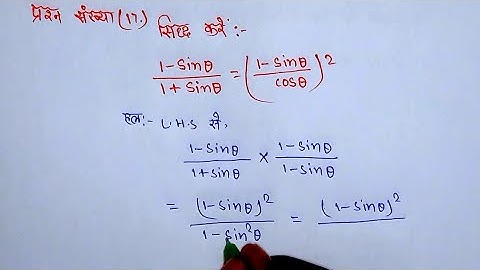 प्रश्न संख्या (17.) सिद्ध करें :-
1-sinθ / 1+sinθ = (1-sinθ / cosθ)²
हल:- L.H.S से,
1-sinθ / 1+sinθ × 1-sinθ / 1-sinθ
= (1-sinθ)² / 1-sin²θ = (1-sinθ)² /